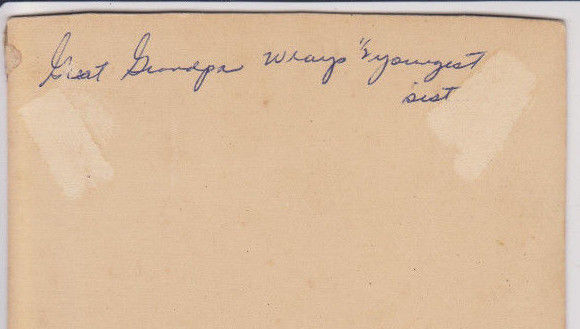 Great Grandpa Wrays "2 youngest
sist